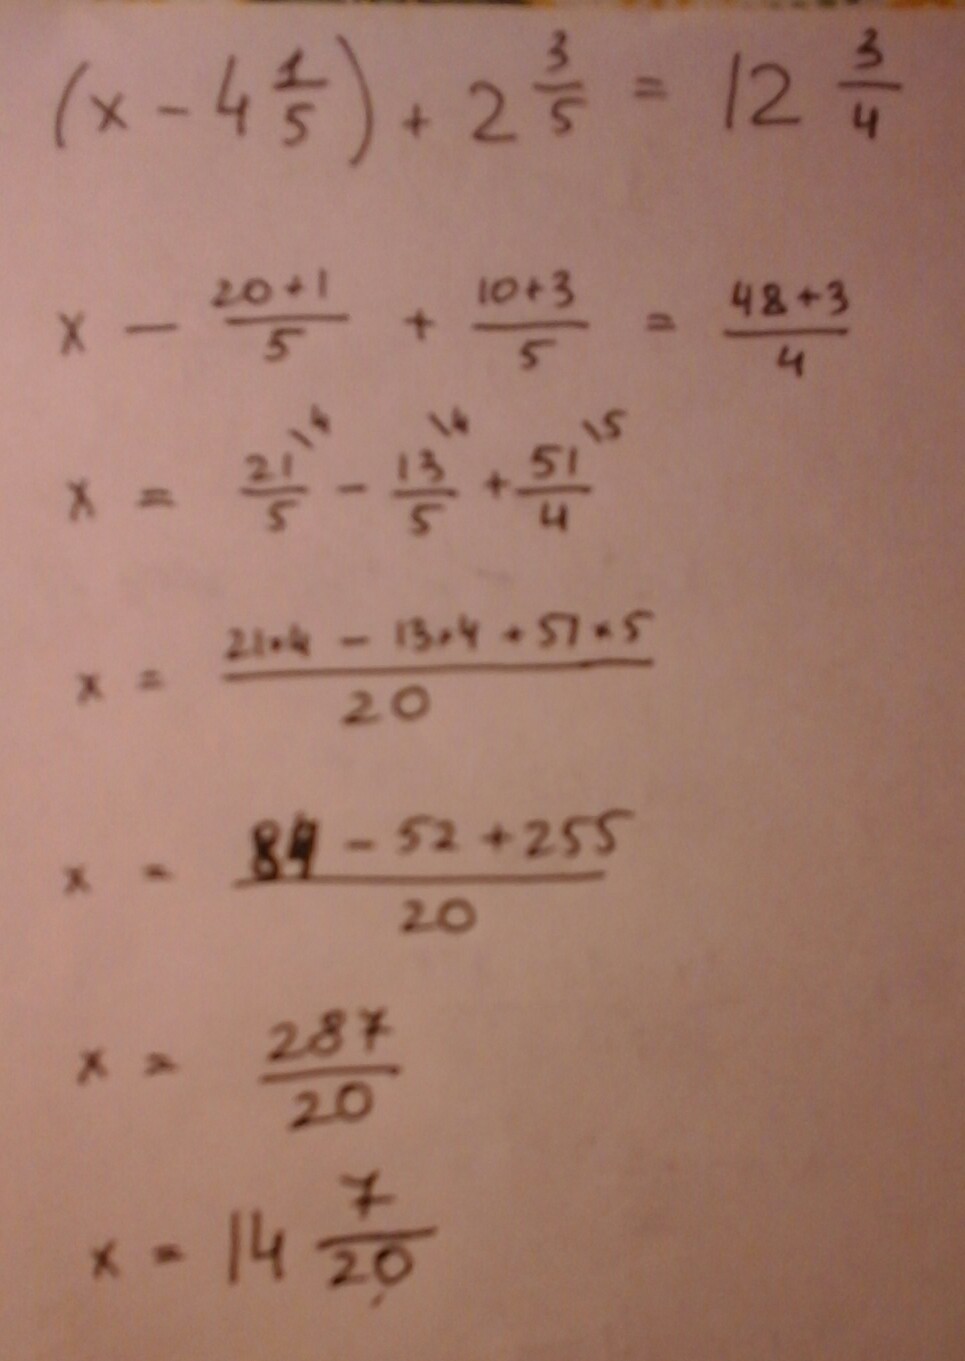 (x - 4 1/5) + 2 3/5 = 12 3/4
x - (20+1)/5 + (10+3)/5 = (48+3)/4
x = 21/5 \4 - 13/5 \4 + 51/4 \5
x = (21·4 - 13·4 + 51·5)/20
x = (84 - 52 + 255)/20
x = 287/20
x = 14 7/20